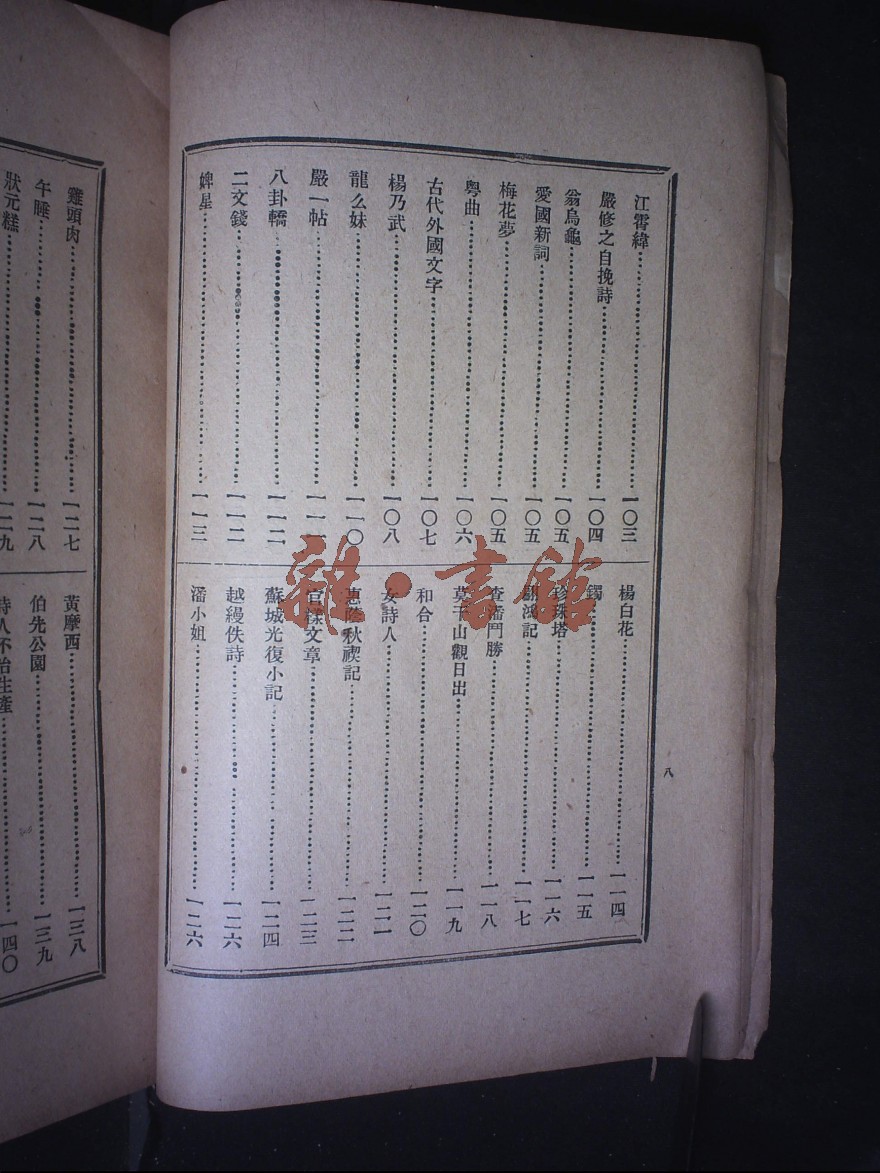 江霄緯……一〇三
嚴修之自挽詩……一〇四
翁烏龜……一〇五
愛國新詞……一〇五
梅花夢……一〇五
粵曲……一〇六
古代外國文字……一〇七
楊乃武……一〇八
龍么妹……一一〇
嚴一帖……一一
八卦轎……一一二
二文錢……一一二
婢星……一一三
楊白花……一一四
鐲……一一五
珍珠塔……一一六
鴻記……一一七
查潘鬥勝……一一八
莫干山觀日出……一一九
和合……一二〇
女詩人……一二一
惠蔭秋禊記……一二二
官樣文章……一二三
蘇城光復小記……一二四
越縵佚詩……一二六
潘小姐……一二六
八
雞頭肉……一二七
午睡……一二八
狀元糕……一二九
黃摩西……一三八
伯先公園……一三九
詩人不治生產……一四〇
雜·書館